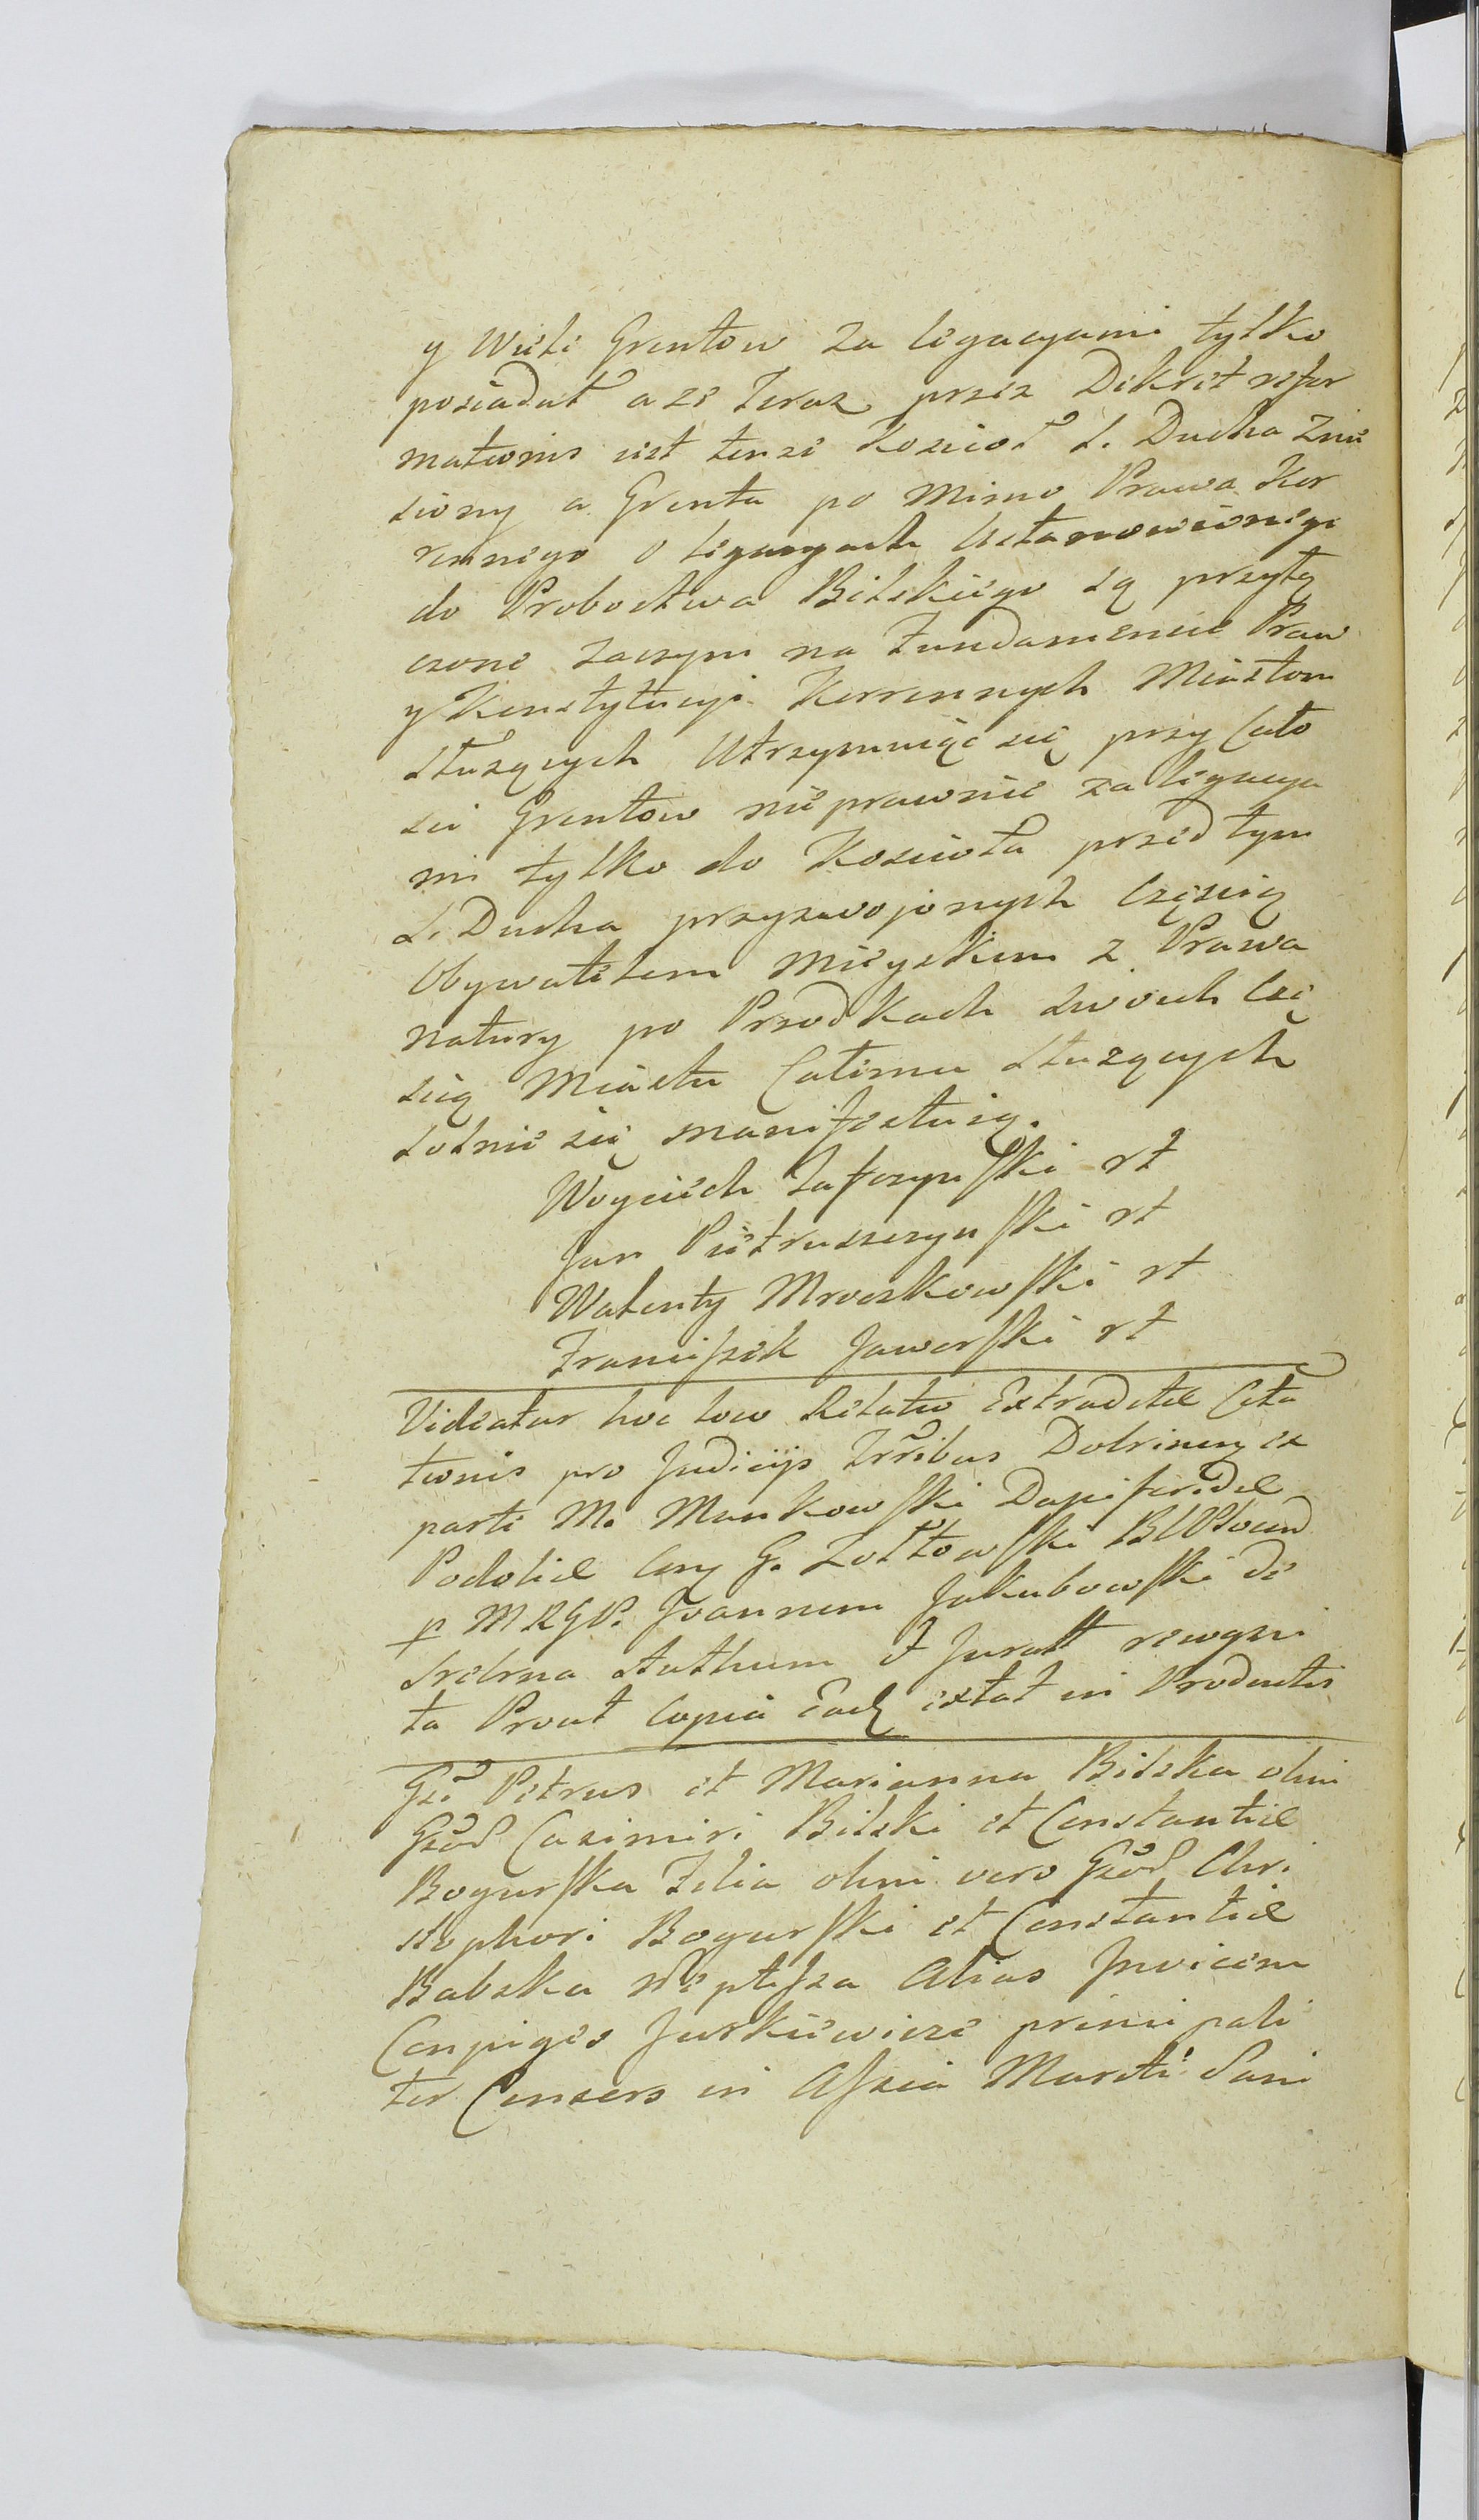 y Wiele Gruntow za legacyami tylko
posiadał a że teraz przez Dekret refor
mationis iest tenże Kosciół S. Ducha znie
siony a Grunta po mimo Prawa Kor
runnego o legacyach Ustanowionego
do Probostwa Bielskiego są przyłą
czone zaczym na Fundamencie Praw
y Konstytucyi Korrunnych Miastom
służących Utrzymuiąc się przy Cało
sci Gruntow nie prawnie za legacya
mi tylko do Kosciola przed tym
S. Ducha przyswojonych Częscią
Obywatelom Mieyskim z Prawa
natury po Przodkach swoich Czę
scią Miastu Całemu służących
solnie się manifestuią.
Woyciech Zafoszynski rt
Jan Pietruszczynski rt
Walenty Mroczkowski rt
Franciszek Jaworski rt
Videatur hoc loco Relatio Extraditae Cita
tionis pro Judicijs Trribus Dobrinen ex
parte M. Mankowski Dapiferidae
Podoliae Cong G. Zołtowski
p MRGP. Joannem Jakubowski de
Srebrna Authum & Juratt recogni
ta Prout Copia Ead extat in Productis
Gsi Petrus et Marianna Bielska olim
Gsor Casimiri Bielski et Constantiae
Bogurska Filia olim vero Gsor Chri
stophori Bogurski et Constantiae
Babska Neptissa Alias Invicem
Conjuges Jurkiewicze principali
ter Consors in Assia Mariti Sani